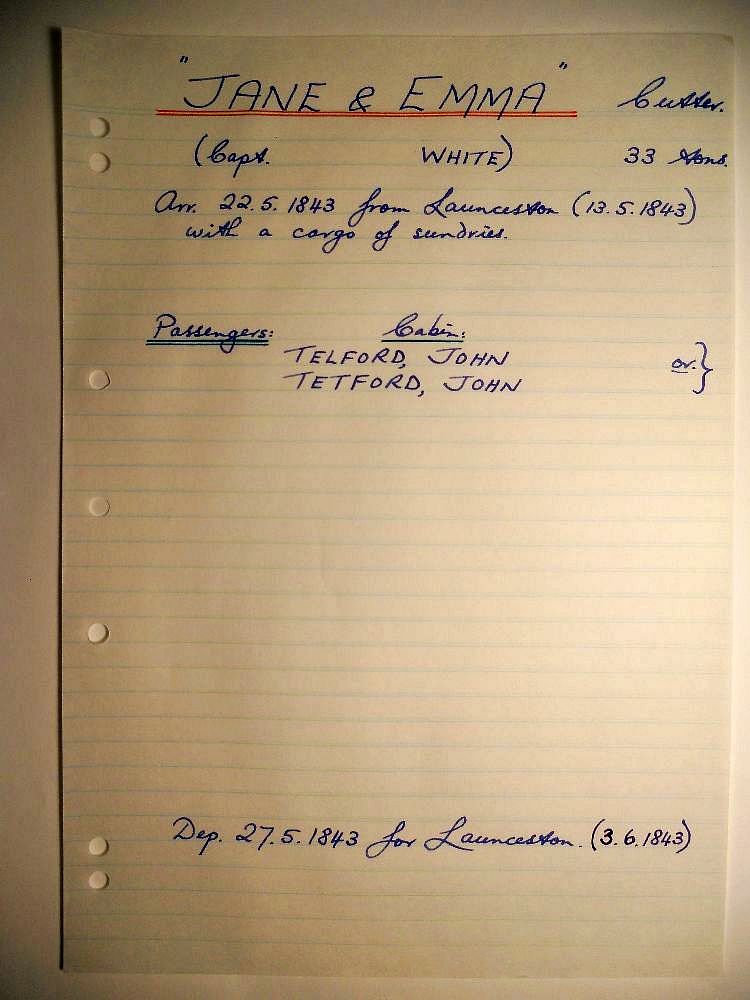 "JANE & EMMA" Cutter.
(Capt. WHITE) 33 tons.
Arr. 22.5.1843 from Launceston (13.5.1843)
with a cargo of sundries.
Passengers: Cabin:
TELFORD, JOHN or }
TETFORD, JOHN
Dep. 27.5.1843 for Launceston. (3.6.1843)